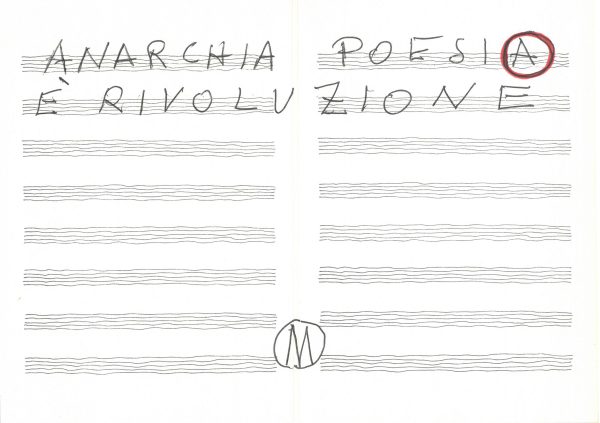 ANARCHIA POESIA
È RIVOLUZIONE
M